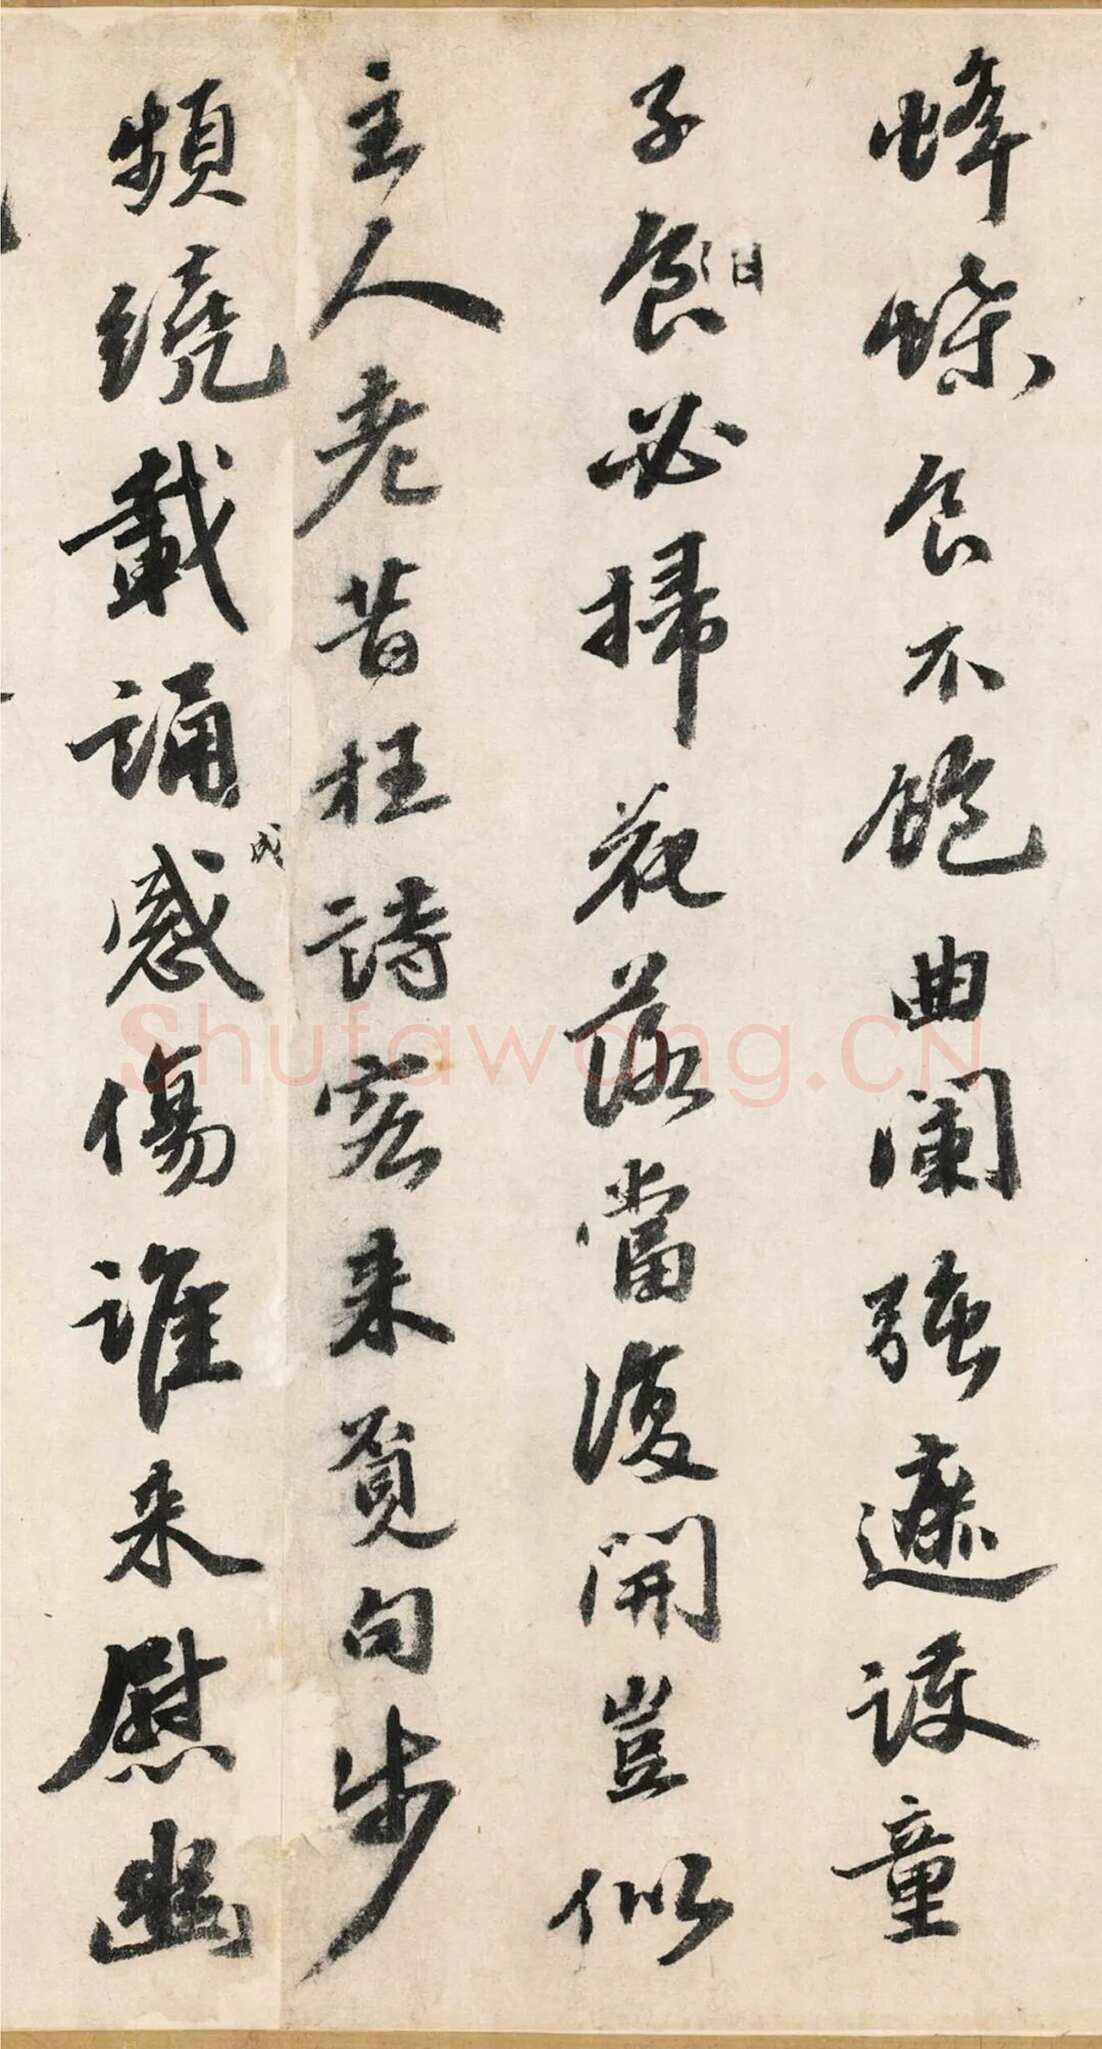 蜂蝶食不飽曲闌強遮護童
子食日必掃花落當復開豈似
主人老昔枉詩客来覓句步
頻繞載誦成感傷誰来慰幽
Shufawang.CN